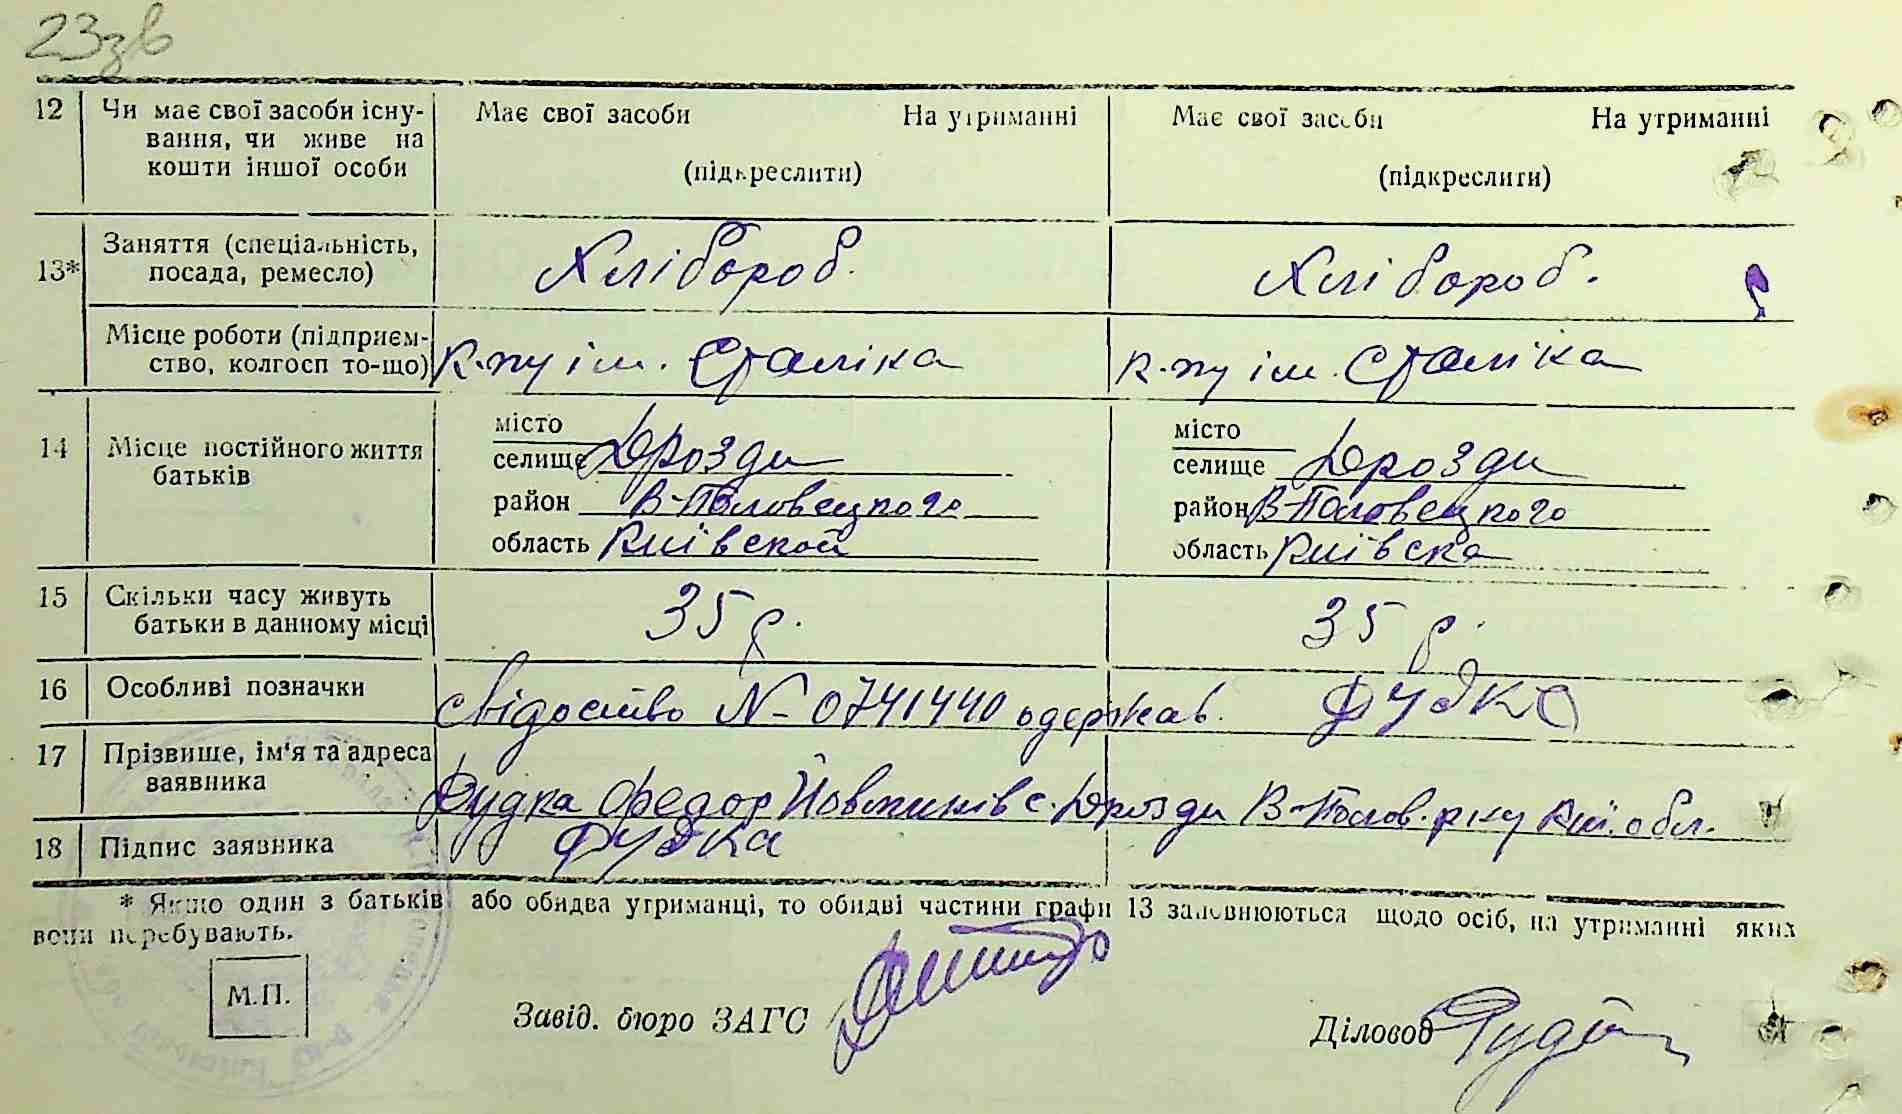 23зв
12 Чи має свої засоби існу- Має свої засоби На утриманні Має свої засоби На утриманні
вання, чи живе на
кошти іншої особи (підкреслити) (підкреслити)
13* Заняття (спеціальність, Хлібороб. Хлібороб.
посада, ремесло)
Місце роботи (підприєм- К-пу ім. Сталіна К-пу ім. Сталіна
ство, колгосп то-що)
14 Місце постійного життя місто місто
батьків селище Дрозди селище Дрозди
район В-Половецкого район В-Половецкого
область Київской область Київска
15 Скільки часу живуть 35 р. 35 р.
батьки в данному місці
16 Особливі позначки свідоство N- 0741440 одержав. Дудка
17 Прізвище, ім'я та адреса
заявника Дудка Федор с. Дрозди В-Полов. р-ну Киї. обл.
18 Підпис заявника Дудка
* Якщо один з батьків або обидва утриманці, то обидві частини графи 13 заповнюються щодо осіб, на утриманні яких
вони перебувають.
М.П.
Завід. бюро ЗАГС
Діловод